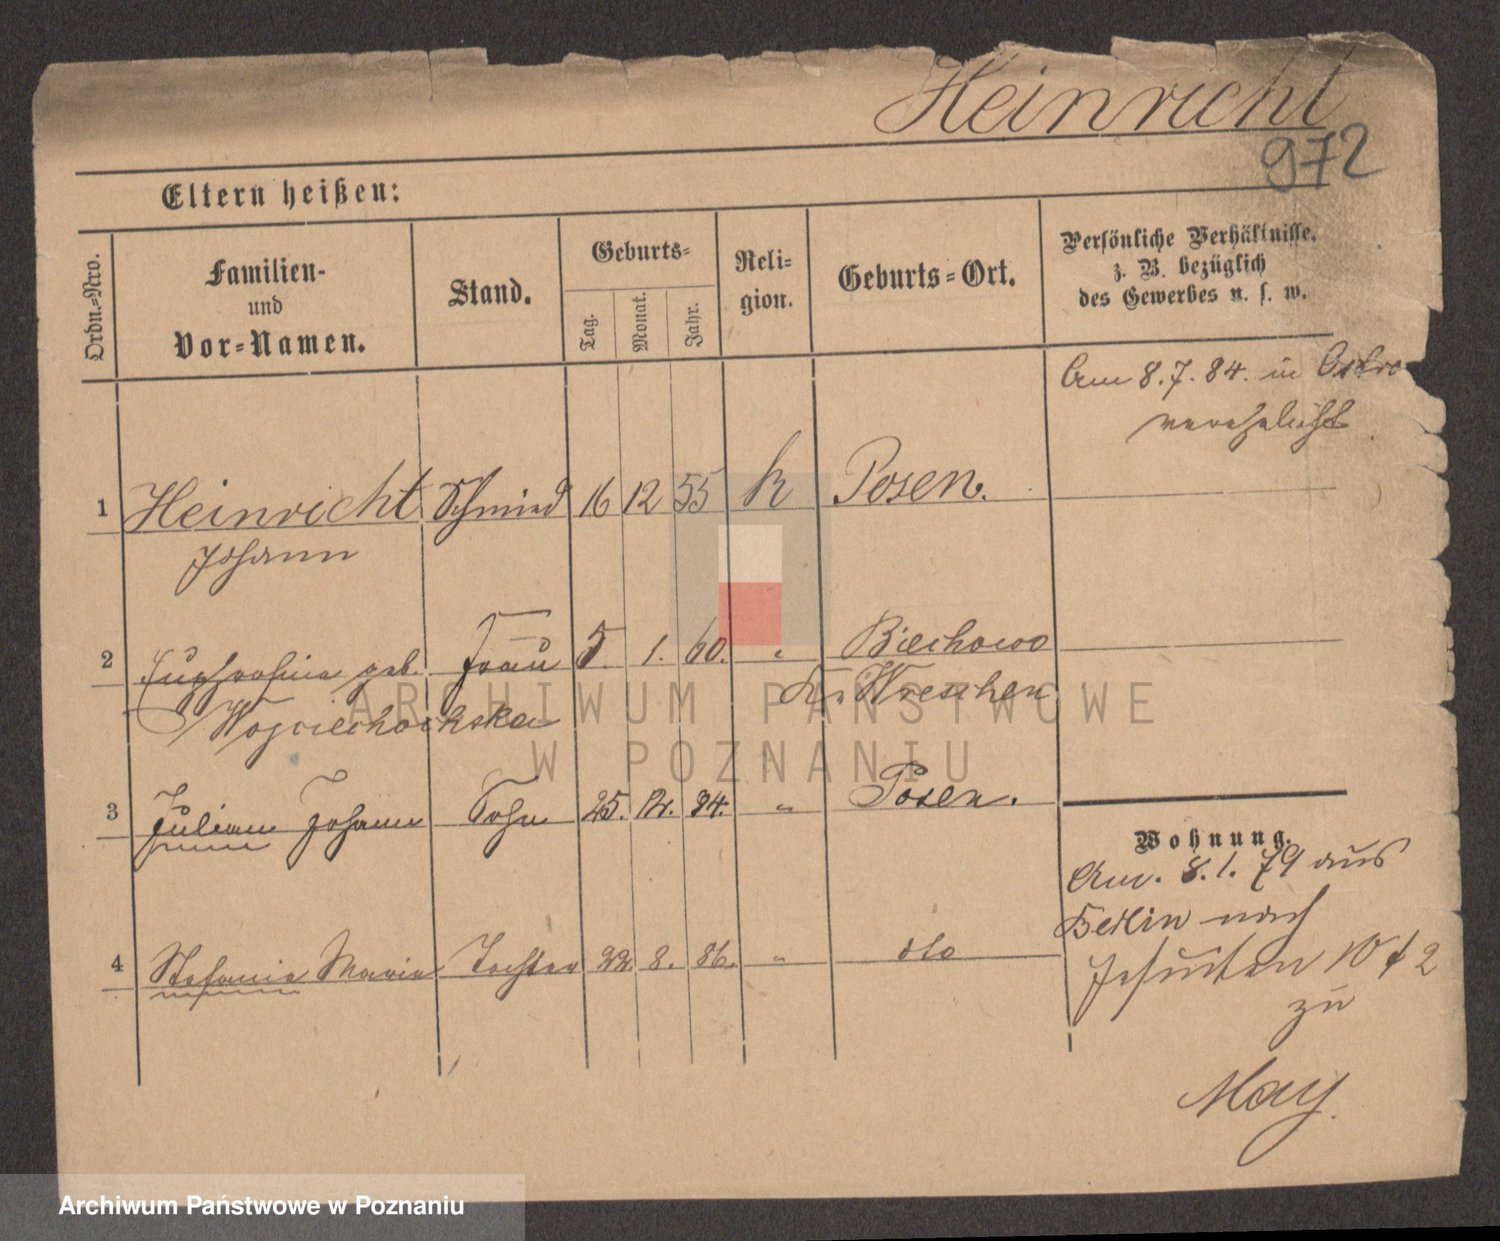 Heinricht
972
Eltern heißen:
Ordn.-Nro.
Familien-
und
Vor-Namen.
Stand.
Geburts-
Tag.
Monat.
Jahr.
Reli-
gion.
Geburts-Ort.
Persönliche Verhältnisse,
z. B. bezüglich
des Gewerbes u. s. w.
Am 8.7.84. in Ostro
verehelicht
1 Heinricht Schmied 16 12 55 k Posen.
Johann
2 Euphrosina geb. Frau 5. 1. 60. " Biechowo
Wojciechowska Kr. Wreschen
3 Julian Johann Sohn 25. 12. 84. " Posen.
Wohnung.
Am. 8.1.79 aus
Berlin nach
Jesuiten 10 2
zu
May.
4 Stefania Maria Tochter 22. 8. 86. " dto
ARCHIWUM PAŃSTWOWE
W POZNANIU
Archiwum Państwowe w Poznaniu